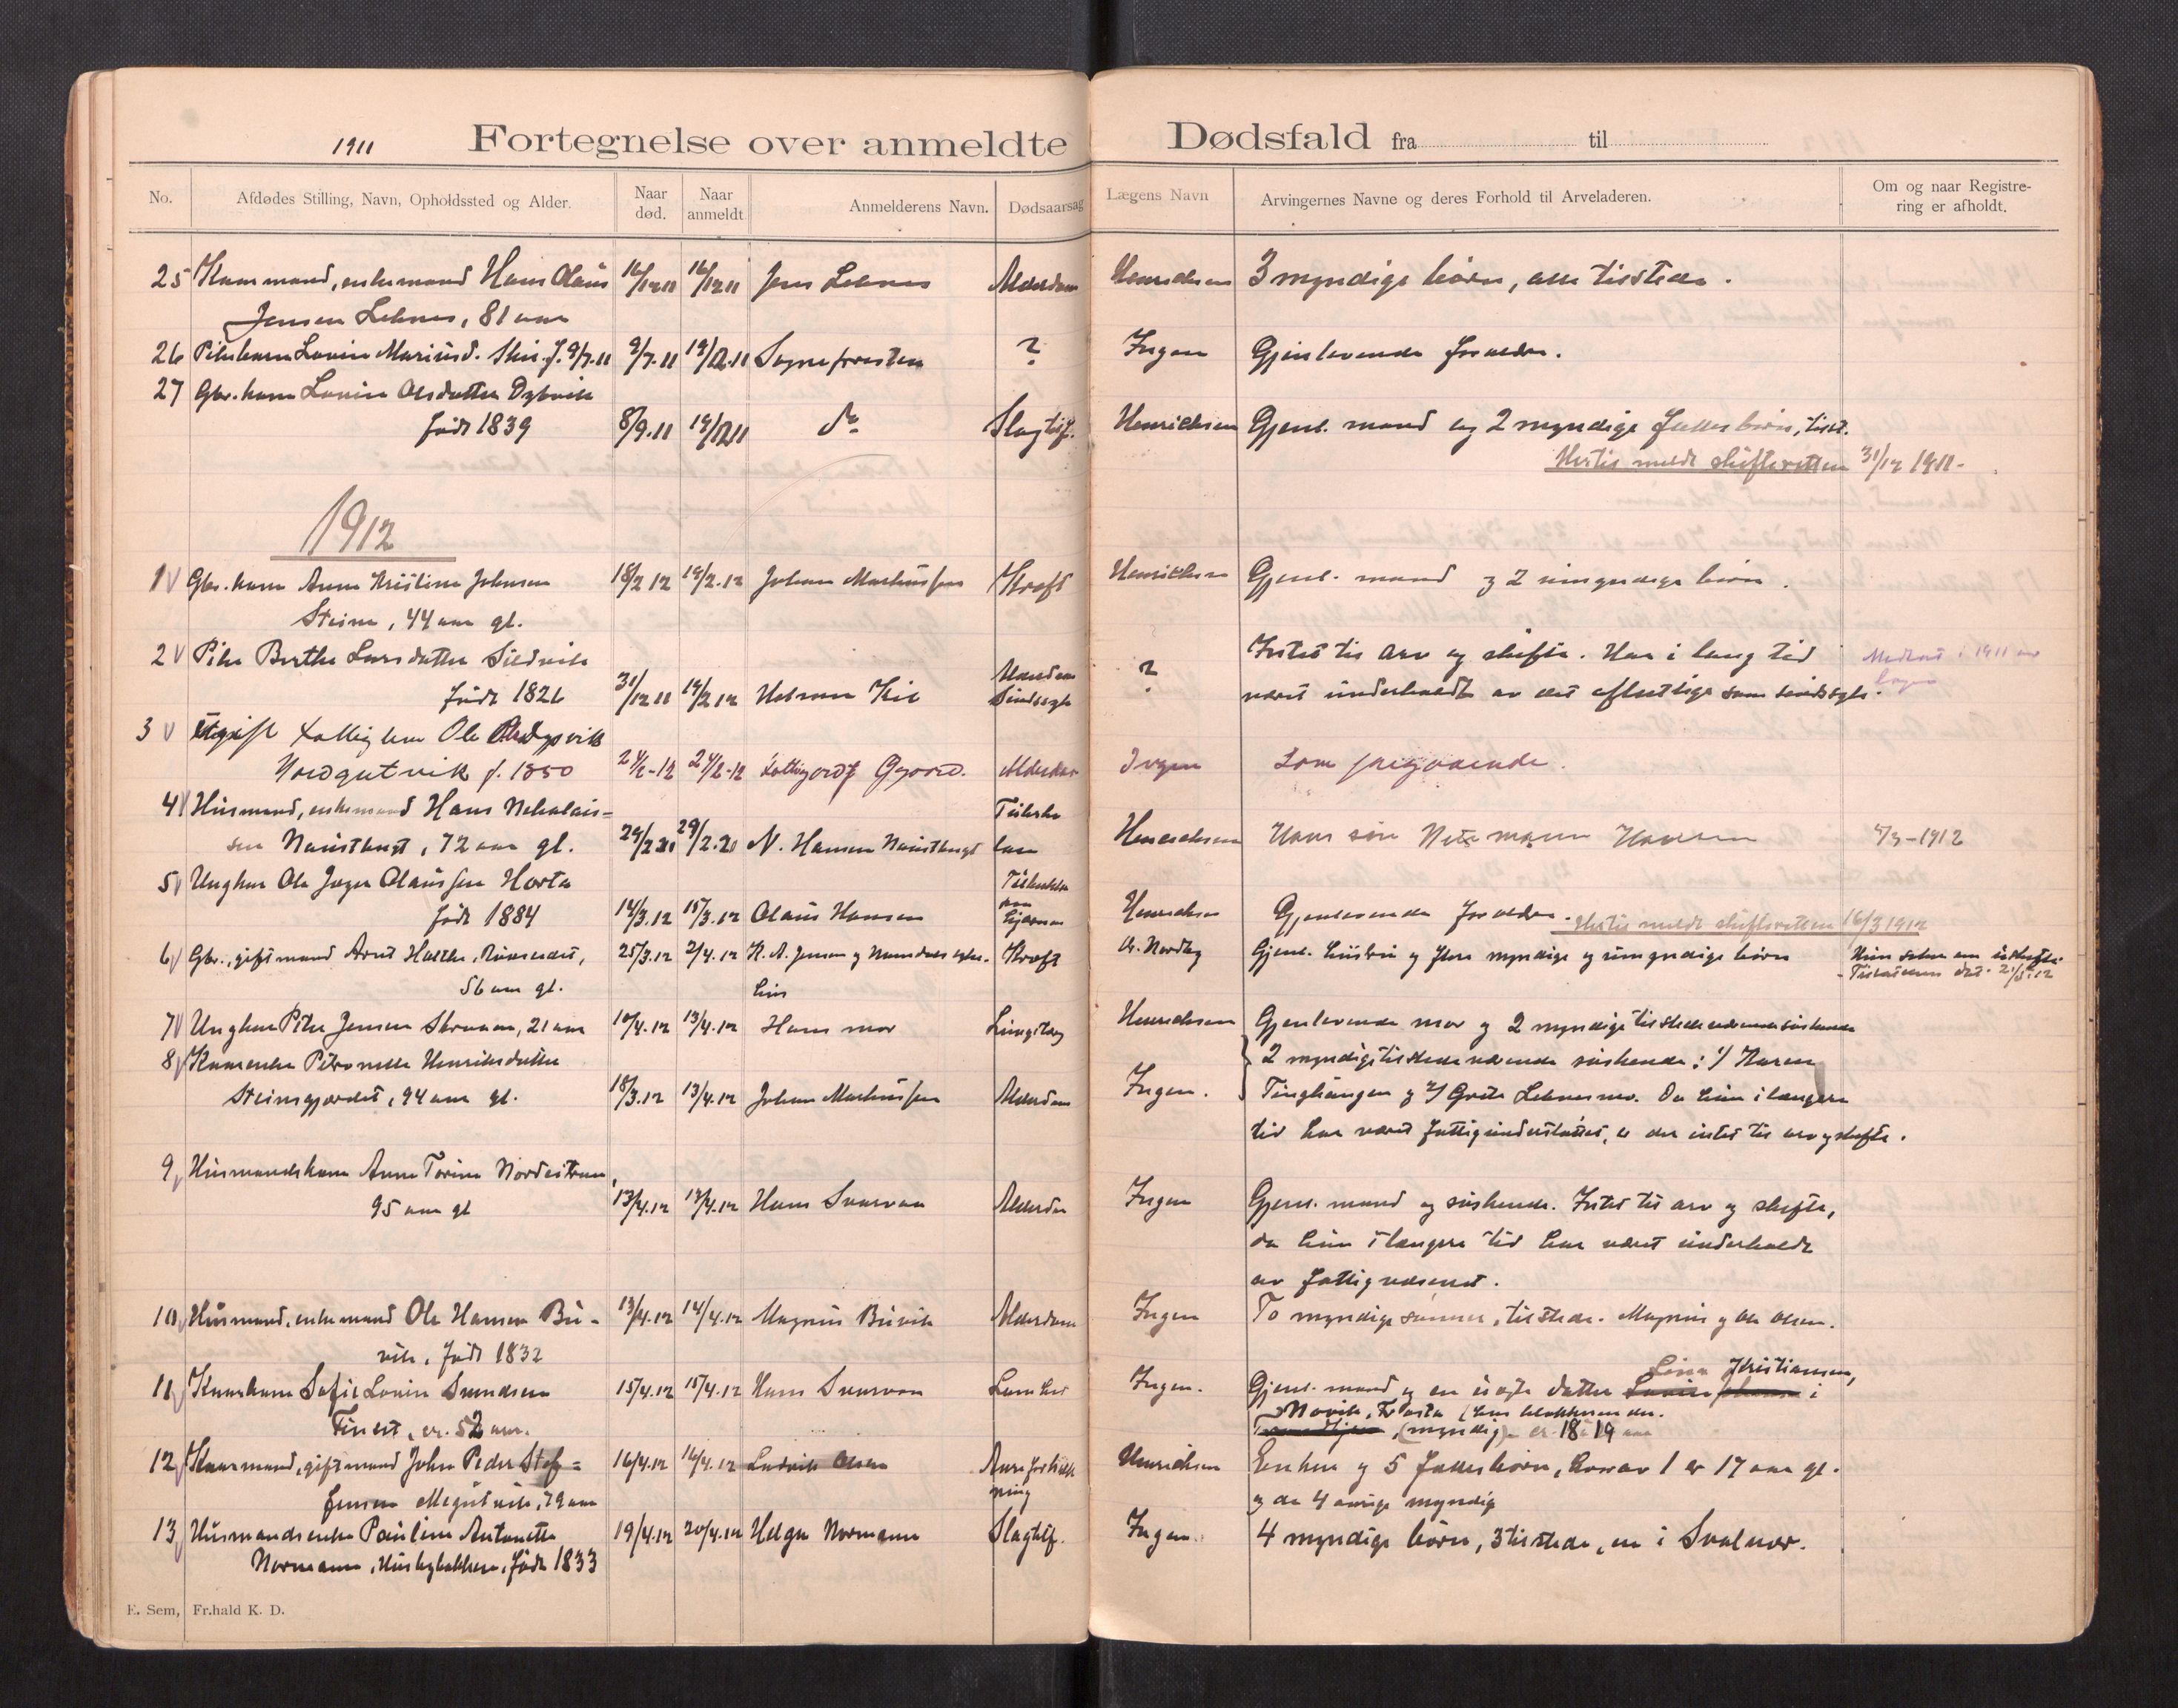 1911 Fortegnelse over anmeldte Dødsfald fra til
No. Afdødes Stilling, Navn, Opholdssted og Alder. Naar død. Naar anmeldt Anmelderens Navn. Dødsaarsag Lægens Navn Arvingernes Navne og deres Forhold til Arveladeren. Om og naar Registrering er afholdt.
25 Kaarmand, enkemand Hans Olaus 16/12 11 16/12 11 Jens Leknes Alderdom Henrichsen 3 myndige børn, alle tilstede.
Jensen Leknes, 81 aar
26 Pikebarn Lovise f. 9/7.11 9/7.11 19/12.11 Sognepresten ? Ingen Gjenlevende forældre.
27 Gbr. kone Lovise Olsdatter Dybvik
født 1839 8/9.11 19/12 11 do Slagtilf. Henrichsen Gjenl. mand og 2 myndige fælles børn, tilst.
Hertil meldt skifteretten 31/12 1911.
1912
1 Gbr. kone Anna Kristine Johnsen 18/2 12 19/2.12 Johan Markussen Kræft Henrichsen Gjenl. mand og 2 umyndige børn.
Steine, 44 aar gl.
2 Pike Berthe Larsdatter Sildvik Intet til arv og skifte. Har i lang tid
født 1826 31/12 11 19/2 12 Alderdom Sindssyk ? været underholdt av det offentlige som sindssyk.
3 Ole
Nordgutvik f. 1850 24/2-12 24/2-12 Alderdom Ingen Som foregaaende.
4 Husmand, enkemand Hans Nikolaisen
Naustbugt, 72 aar gl. 29/2.20 N. Hansen Naustbugt Henrichsen Hans søn Hansen 5/3-1912
5 Ungkar Ole Jæger Olaussen Horta
født 1884 14/3.12 15/3.12 Olaus Hansen Henrichsen Gjenlevende forældre. Hertil meldt skifteretten 16/3 1912
6 Gbr., gift mand Arnt 25/3.12 2/4.12 K. A. Jensen og Kræft dr. Nordby Gjenl. hustru og flere myndige og umyndige børn
56 aar gl.
7 Ungkar Peter Jensen 21 aar 10/4.12 13/4.12 Hans mor Henrichsen Gjenlevende mor og 2 myndige tilstedeværende søskende
8 Kaarenke Petronelle Henriksdatter 2 myndige tilstedeværende søskende: 1/ Karen
Steinsgjerdet, 94 aar gl. 18/3.12 13/4.12 Johan Markussen Alderdom Ingen. Tinghaugen og 2/ Grete Leknesmo. Da hun i længere
tid har været fattigunderstøttet, er der intet til arv og skifte.
9 Husmandskone Anne Torine Nordestraum,
95 aar gl 13/4.12 13/4.12 Hans Svarvaa Alderdom Ingen Gjenl. mand og søskende. Intet til arv og skifte,
da hun i længere tid har været underholdt
av fattigvæsenet.
10 Husmand, enkemand Ole Hansen Bu- 13/4.12 14/4.12 Magnus Buvik Alderdom Ingen To myndige sønner, tilstede. Magnus og Ole Olsen.
vik, født 1832
11 Kaarkone Sofie Lovise Svendsen 15/4.12 15/4.12 Hans Svarvaa Ingen. Gjenl. mand og en uægte datter Lina Kristiansen, i
52 aar. Novik, (myndig) 18 19 aar
12 Kaarmand, gift mand John Peder Stef- 16/4.12 16/4.12 Ludvik Olsen Henrichsen Enken og 5 fælles børn, hvorav 1 er 17 aar gl.
fensen Megutvik, 79 aar og de 4 øvrige myndig
13 Husmandsenke Pauline Antonette 19/4.12 20/4.12 Helge Normann Slagtilf. Ingen. 4 myndige børn, 3 tilstede, en i Svolvær.
Normann, Husbybakken, født 1833
E. Sem, Fr.hald K. D.